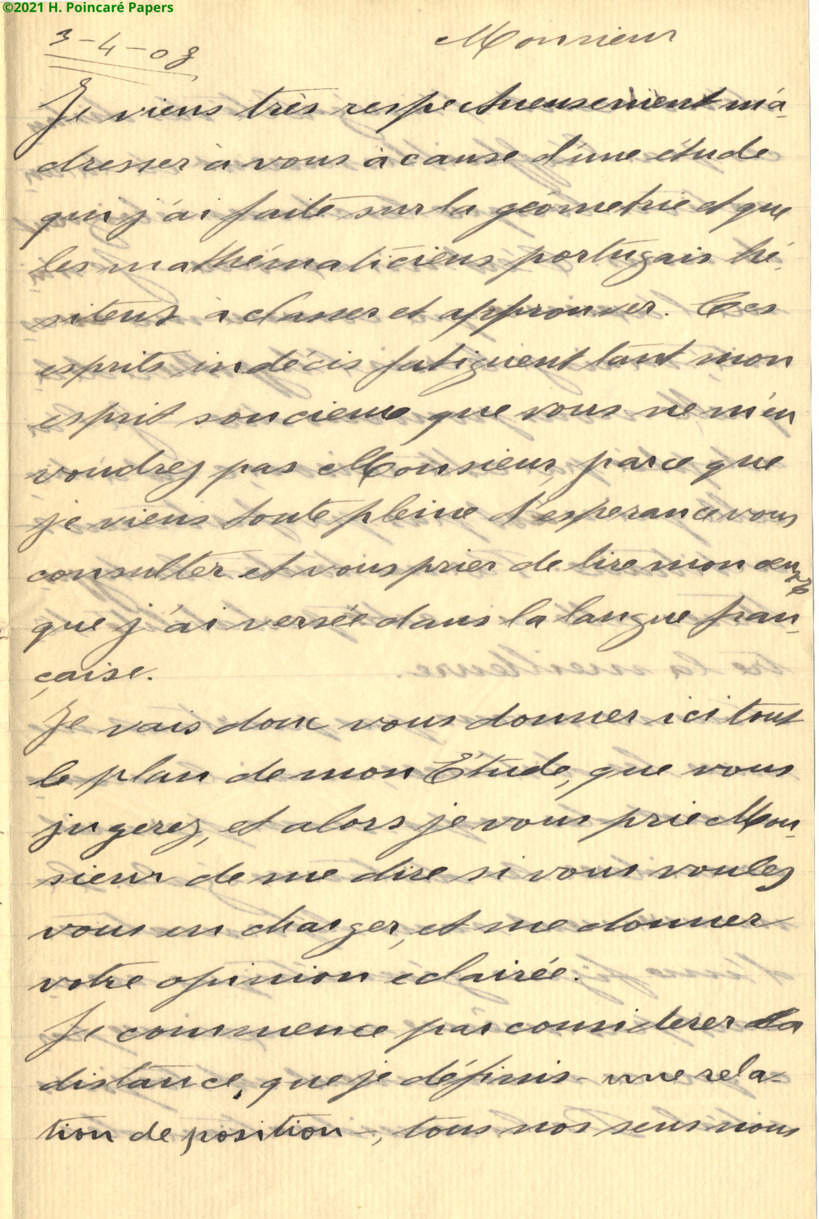 ©2021 H. Poincaré Papers
3-4-08
Monsieur
Je viens très respectueusement m'a-
dresser à vous à cause d'une étude
que j'ai faite sur la géometrie et que
les mathématiciens portugais hé-
sitent à classer et approuver. Ces
esprits indécis fatiguent tant mon
esprit soucieux que vous ne m'en
voudrez pas Monsieur, parce que
je viens toute pleine d'esperance vous
consulter et vous prier de lire mon œuvre
que j'ai versée dans la langue fran-
çaise.
Je vais donc vous donner ici tout
le plan de mon Étude, que vous
jugerez, et alors je vous prie Mon-
sieur de me dire si vous voulez
vous en charger, et me donner
votre opinion eclairée.
Je commence par considerer la
distance, que je définis - une rela-
tion de position -, tous nos sens nous